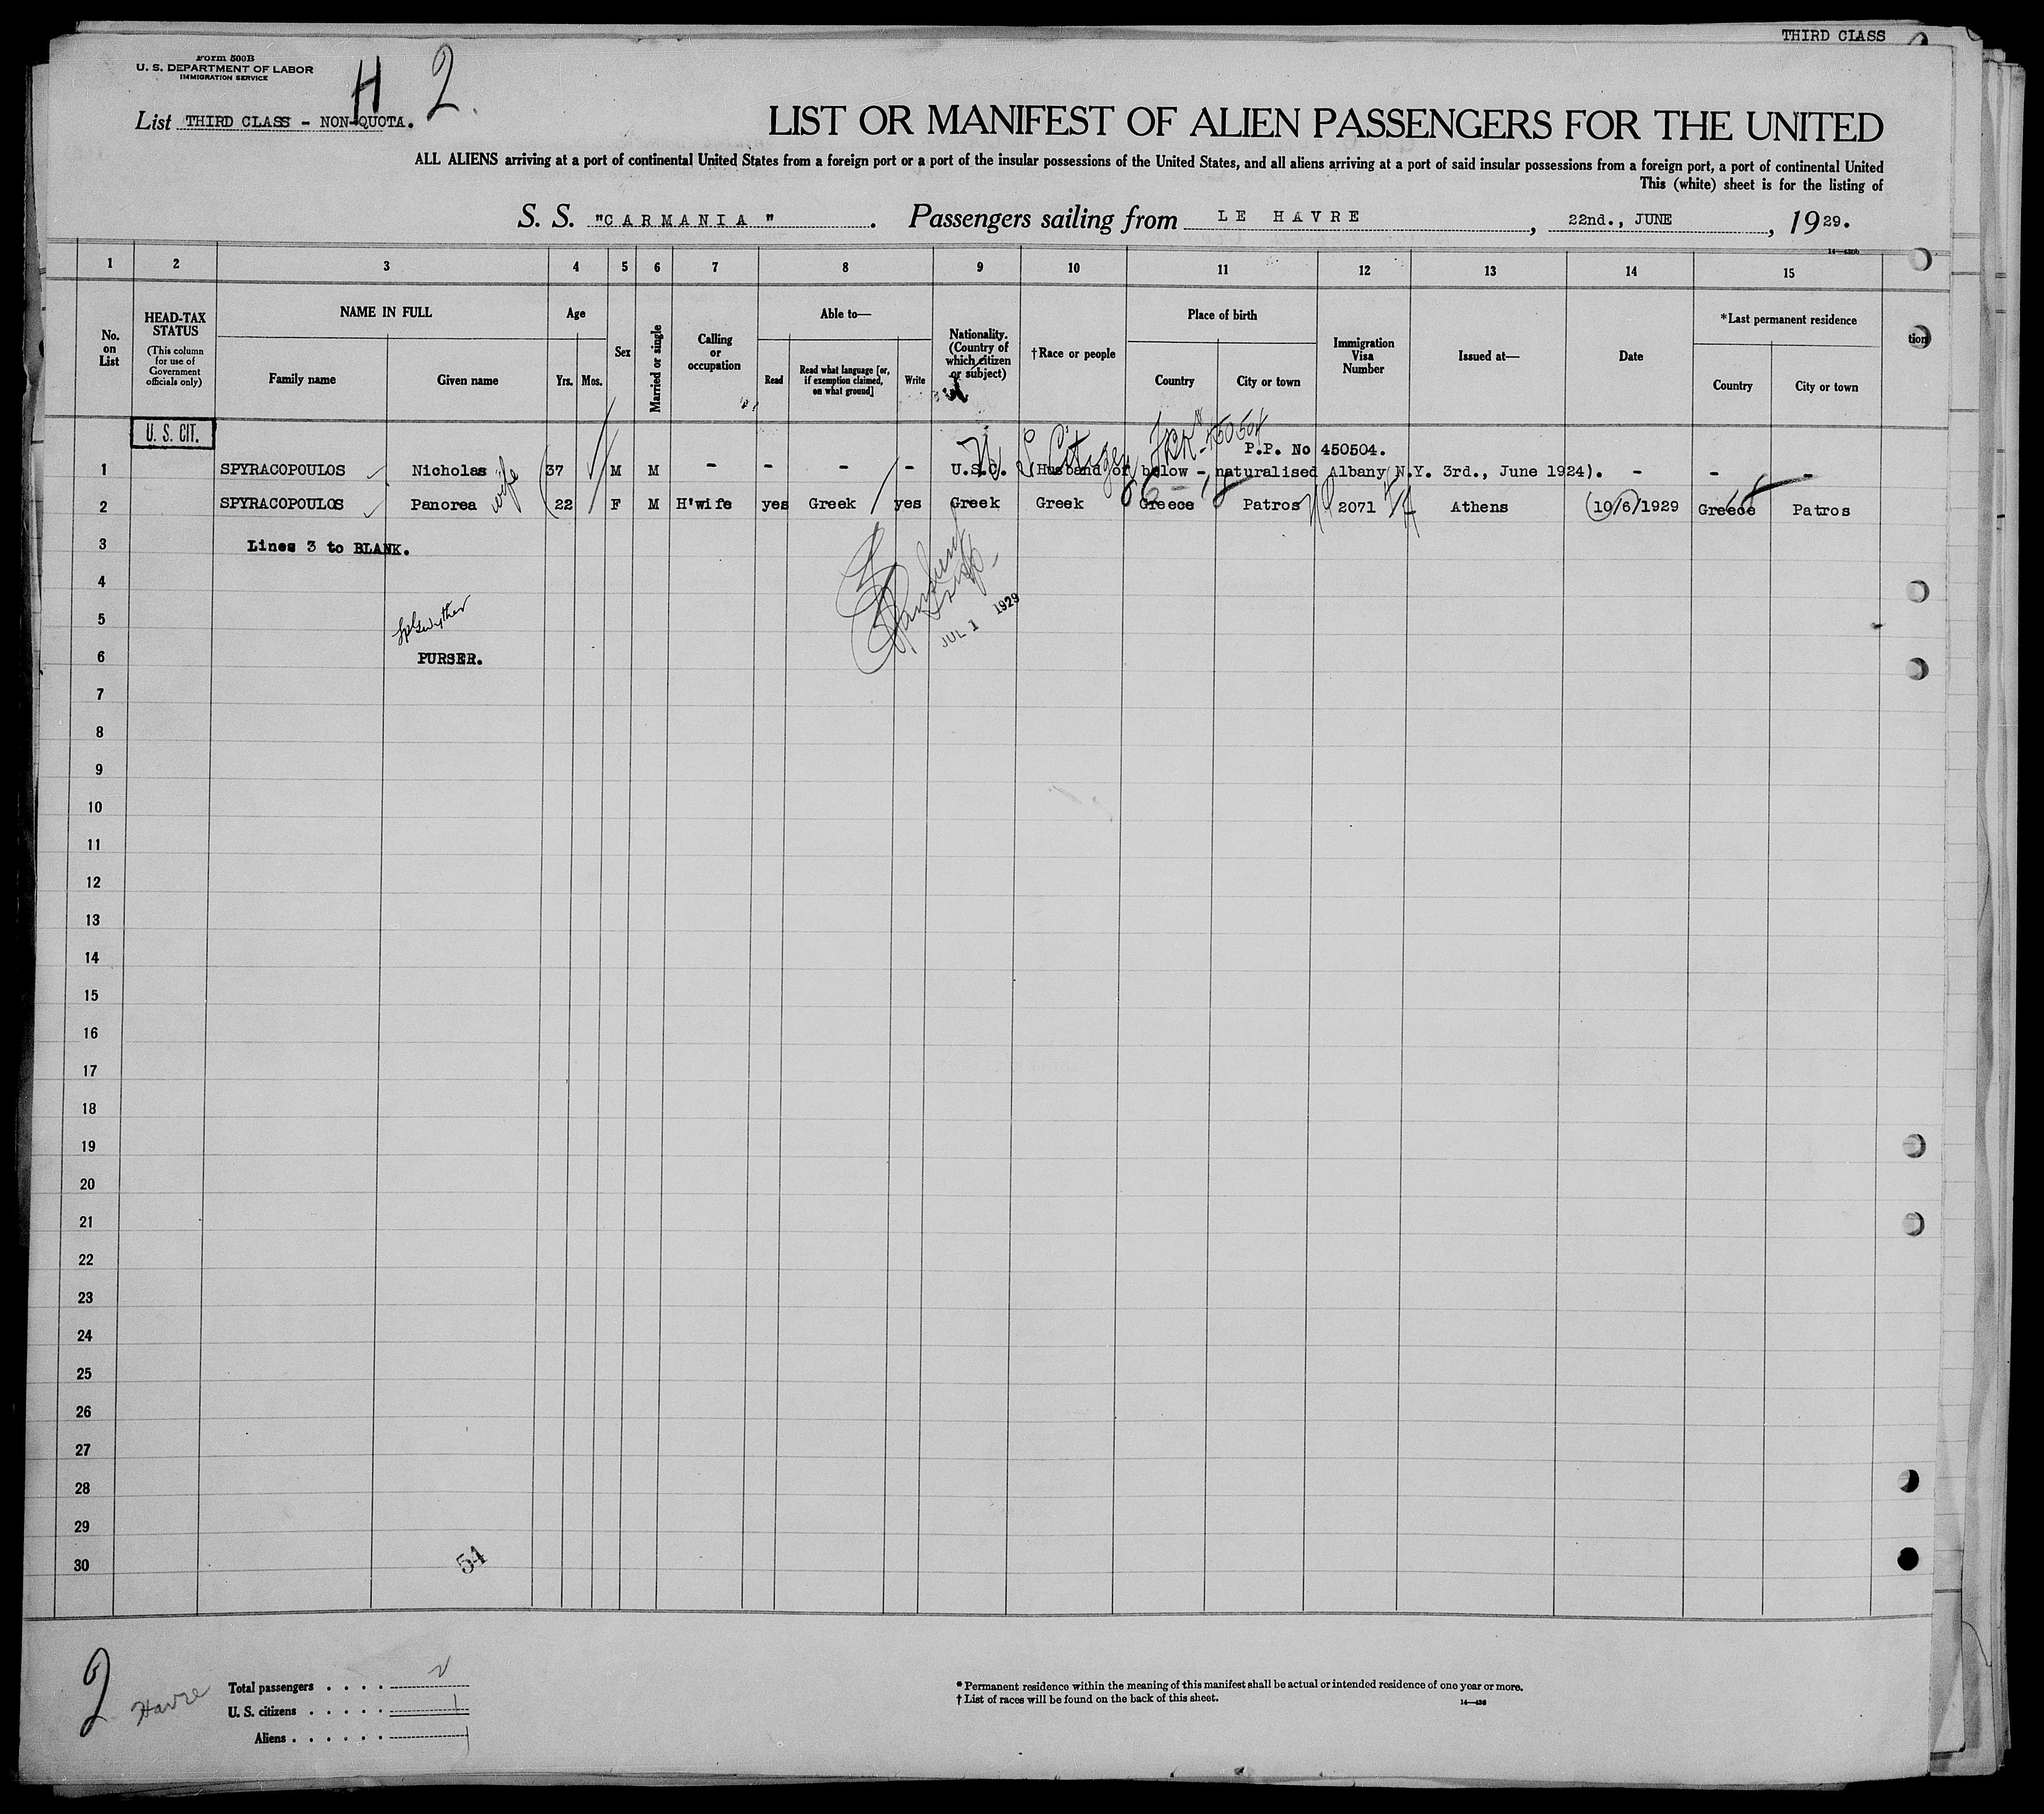 THIRD CLASS
Form 500B
U. S. DEPARTMENT OF LABOR
IMMIGRATION SERVICE
H 2.
List THIRD CLASS - NON-QUOTA.
LIST OR MANIFEST OF ALIEN PASSENGERS FOR THE UNITED
ALL ALIENS arriving at a port of continental United States from a foreign port or a port of the insular possessions of the United States, and all aliens arriving at a port of said insular possessions from a foreign port, a port of continental United
This (white) sheet is for the listing of
S. S. "CARMANIA". Passengers sailing from LE HAVRE, 22nd., JUNE, 1929.
14—430b
1 2 3 4 5 6 7 8 9 10 11 12 13 14 15
No. on List
HEAD-TAX STATUS (This column for use of Government officials only)
NAME IN FULL
Family name Given name
Age
Yrs. Mos.
Sex
Married or single
Calling or occupation
Able to—
Read Read what language [or, if exemption claimed, on what ground] Write
Nationality. (Country of which citizen or subject)
†Race or people
Place of birth
Country City or town
Immigration Visa Number
Issued at—
Date
*Last permanent residence
Country City or town
tion
U. S. CIT.
U S Citizen 450504
P.P. No 450504.
1 SPYRACOPOULOS Nicholas 37 M M - - - - U.S.C. (Husband of below - naturalised Albany N.Y. 3rd., June 1924). - - -
wife
2 SPYRACOPOULOS Panorea 22 F M H'wife yes Greek yes Greek Greek Greece Patros 2071 Athens 10/6/1929 Greece Patros
3 Lines 3 to BLANK.
4
5
JUL 1 1929
6 PURSER.
7
8
9
10
11
12
13
14
15
16
17
18
19
20
21
22
23
24
25
26
27
28
29
30
54
2 Havre
Total passengers . . . . 2
U. S. citizens . . . . . 1
Aliens . . . . . . 1
* Permanent residence within the meaning of this manifest shall be actual or intended residence of one year or more.
† List of races will be found on the back of this sheet.
14—430